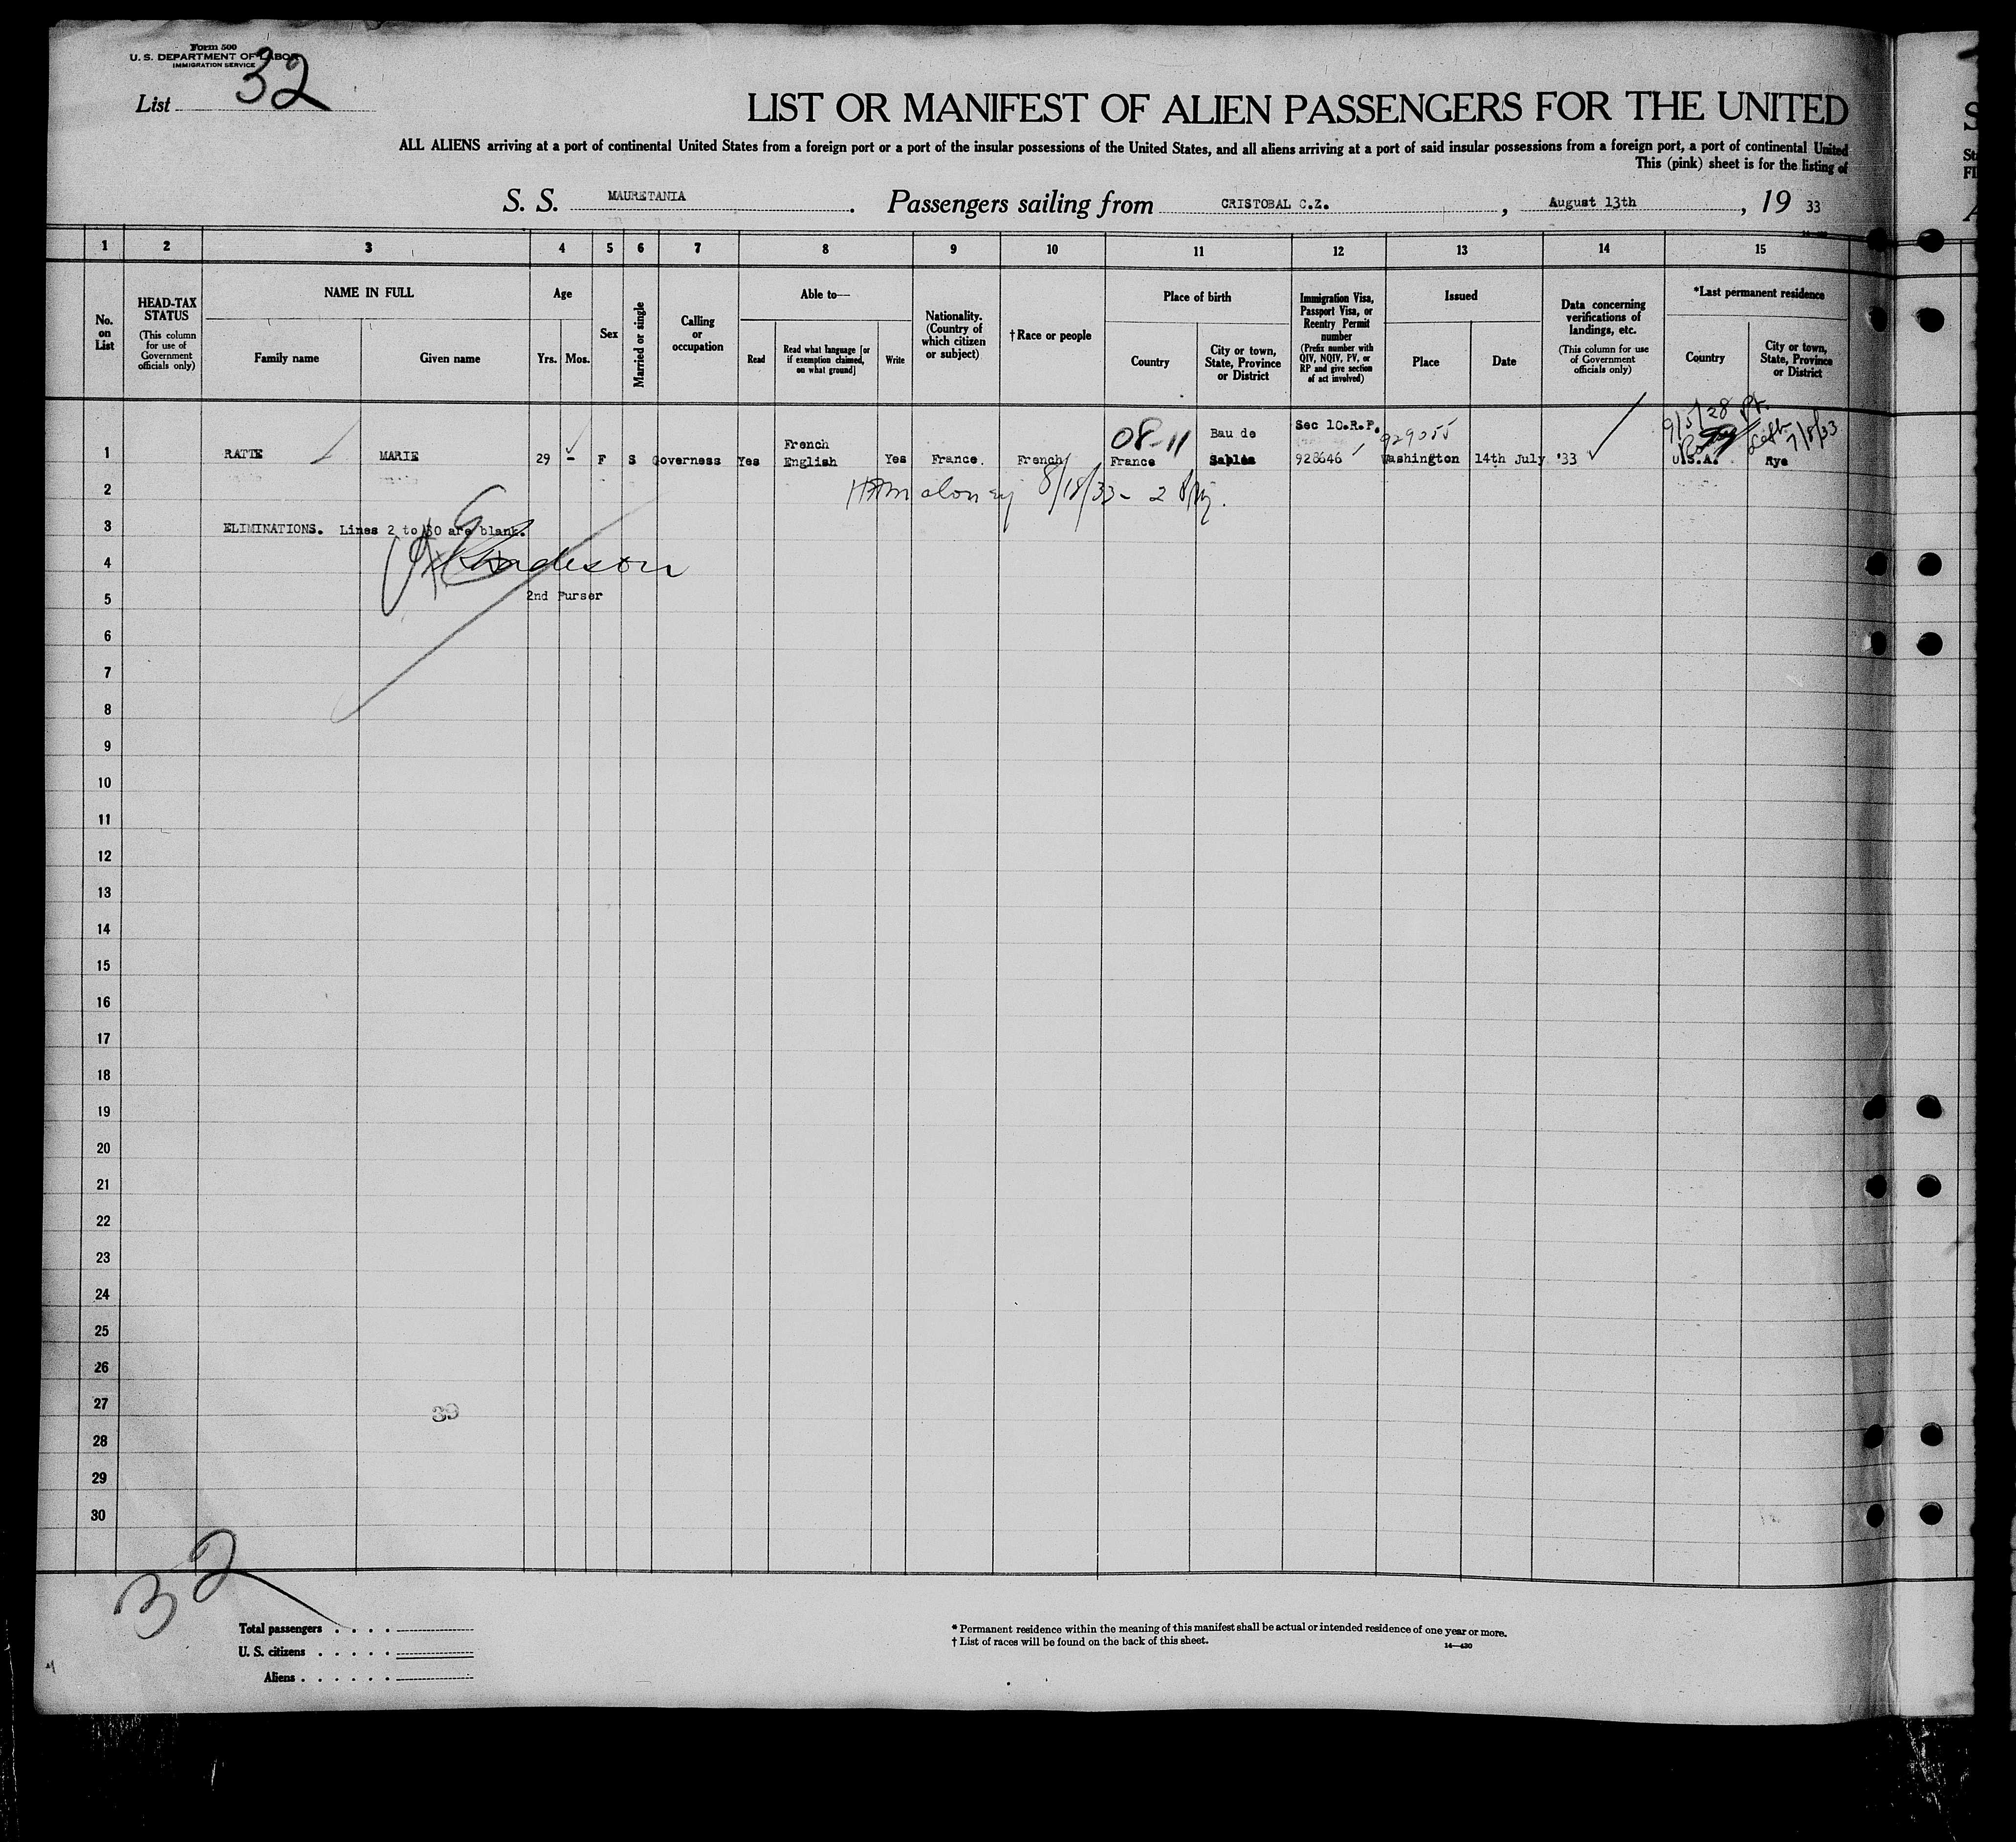 Form 500
U. S. DEPARTMENT OF LABOR
IMMIGRATION SERVICE
List 32
LIST OR MANIFEST OF ALIEN PASSENGERS FOR THE UNITED
ALL ALIENS arriving at a port of continental United States from a foreign port or a port of the insular possessions of the United States, and all aliens arriving at a port of said insular possessions from a foreign port, a port of continental United
This (pink) sheet is for the listing of
S. S. MAURETANIA. Passengers sailing from CRISTOBAL C.Z., August 13th, 19 33
1 2 3 4 5 6 7 8 9 10 11 12 13 14 15
No. on List
HEAD-TAX STATUS
(This column for use of Government officials only)
NAME IN FULL
Family name
Given name
Age
Yrs.
Mos.
Sex
Married or single
Calling or occupation
Able to—
Read
Read what language [or if exemption claimed, on what ground]
Write
Nationality. (Country of which citizen or subject)
†Race or people
Place of birth
Country
City or town, State, Province or District
Immigration Visa, Passport Visa, or Reentry Permit number
(Prefix number with QIV, NQIV, PV, or RP and give section of act involved)
Issued
Place
Date
Data concerning verifications of landings, etc.
(This column for use of Government officials only)
*Last permanent residence
Country
City or town, State, Province or District
9/5/28
08-11 Bau de Sec 10.R.P. 929055 7/8/33
French
1 RATTE MARIE 29 - F S Governess Yes English Yes France. French France Sables 928646 Washington 14th July '33 U.S.A. Rye
2 8/18/33 - 2
3 ELIMINATIONS. Lines 2 to 30 are blank.
4
5 2nd Purser
6
7
8
9
10
11
12
13
14
15
16
17
18
19
20
21
22
23
24
25
26
27
39
28
29
30
32
Total passengers
U. S. citizens
Aliens
* Permanent residence within the meaning of this manifest shall be actual or intended residence of one year or more.
† List of races will be found on the back of this sheet.
14—430